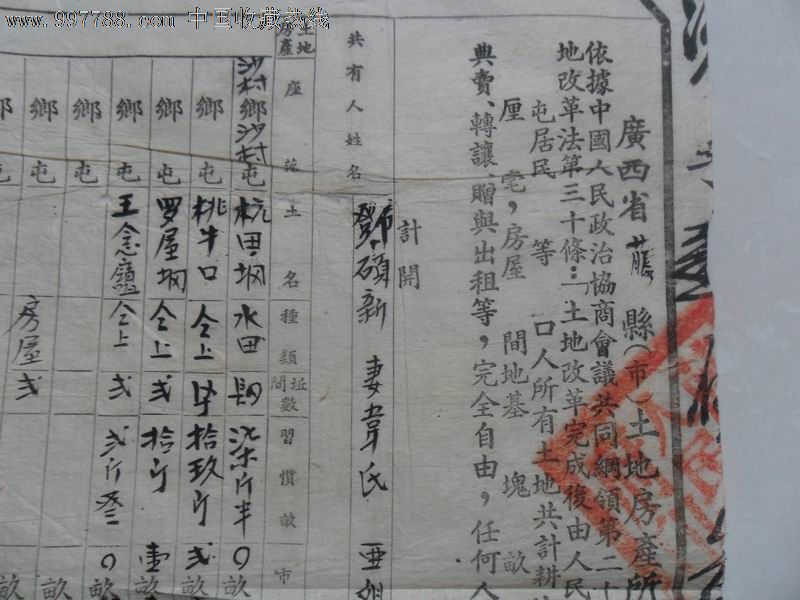 www.997788.com 中国收藏热线
廣西省藤縣（市）土地房產所
依據中國人民政治協商會議共同綱領第二十
地改革法第三十條：「土地改革完成後由人民
屯居民 等 口人所有土地共計耕
厘 宅，房屋 間地基 塊 畝
典賣、轉讓、贈與出租等，完全自由，任何人
計開
共有人姓名 鄧碩新 妻韋氏
土地房產 座落 土名 種類 坵間數 習慣畝 市
沙村鄉沙村屯 杭田垌 水田 柒斤半 0畝
鄉 屯 桃牛口 仝上 拾玖斤 弍畝
鄉 屯 罗屋垌 仝上 弍 拾斤 壹畝
鄉 屯 王念 仝上 弍 弍斤 0畝
鄉 屯 畝
鄉 屯 畝
鄉 屯 房屋 弍 畝